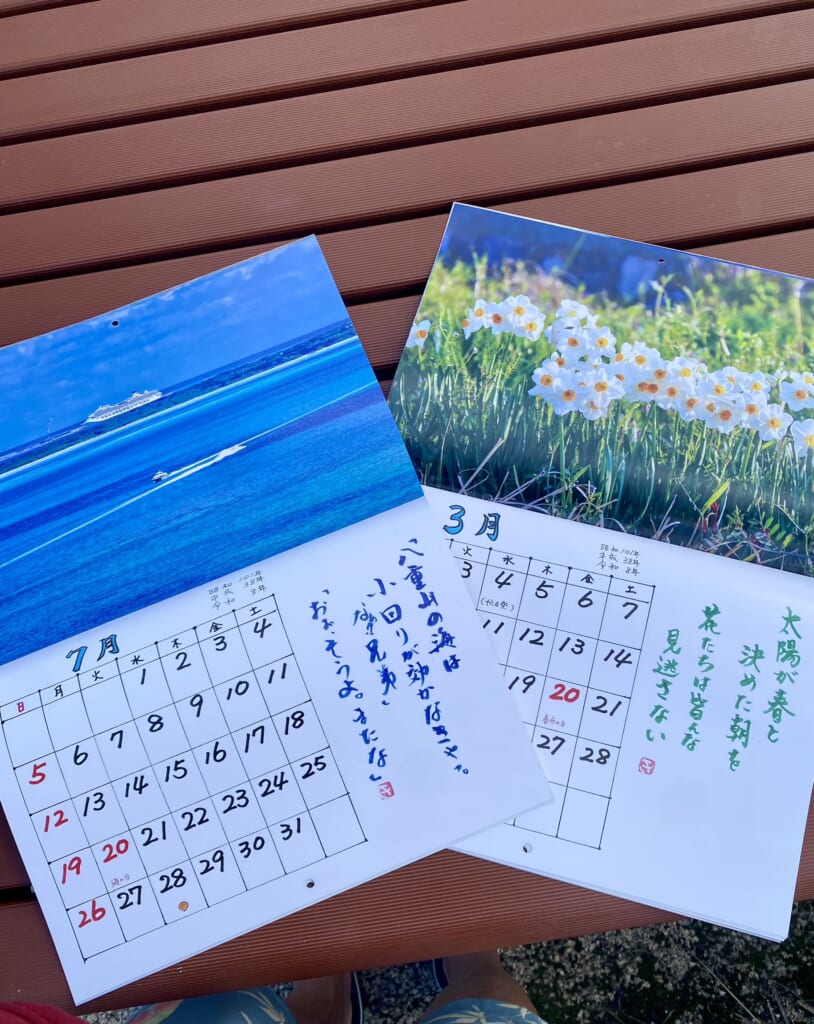 7月
昭和 101年
平成 38年
令和 8年
日 月 火 水 木 金 土
1 2 3 4
5 6 7 8 9 10 11
12 13 14 15 16 17 18
19 20 21 22 23 24 25
海の日
26 27 28 29 30 31
「八重山の海は
小回りが効かな
なぁ!!兄弟」
「おぉ、そうよ。またな」
3月
昭和 101年
平成 38年
令和 8年
火 水 木 金 土
3 4 5 6 7
(十六日祭)
11 12 13 14
19 20 21
春分の日
27 28
太陽が春と
決めた朝を
花たちは皆んな
見逃さない